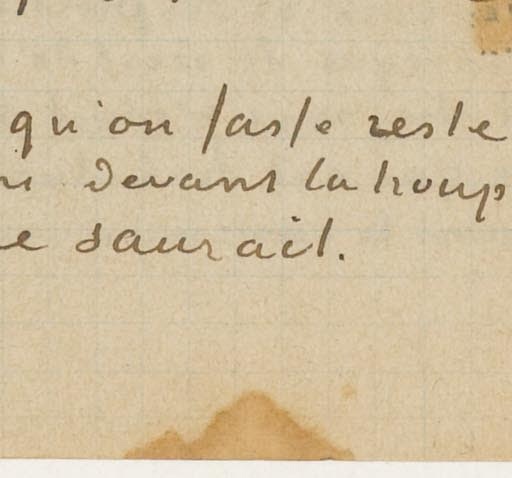 qu'on fasse reste
devant la troup
e saurait.